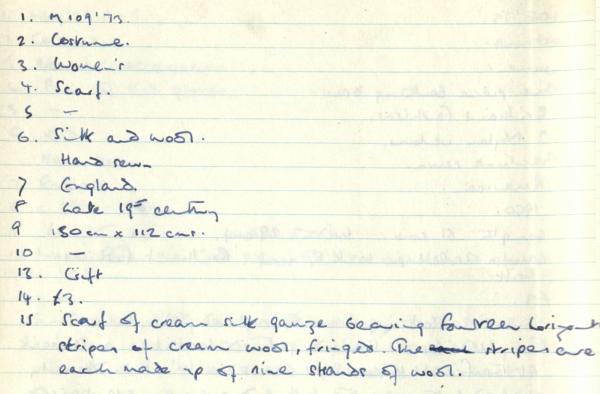 1. M109'73.
2. Costume.
3. Women's
4. Scarf.
5 —
6. Silk and wool.
Hand sewn
7 England.
8 Late 19th century
9 150cm x 112 cms.
10 —
13. Gift
14. £3.
15 Scarf of cream silk gauze bearing fourteen horizont
stripes of cream wool, fringed. The stripes are
each made up of nine strands of wool.